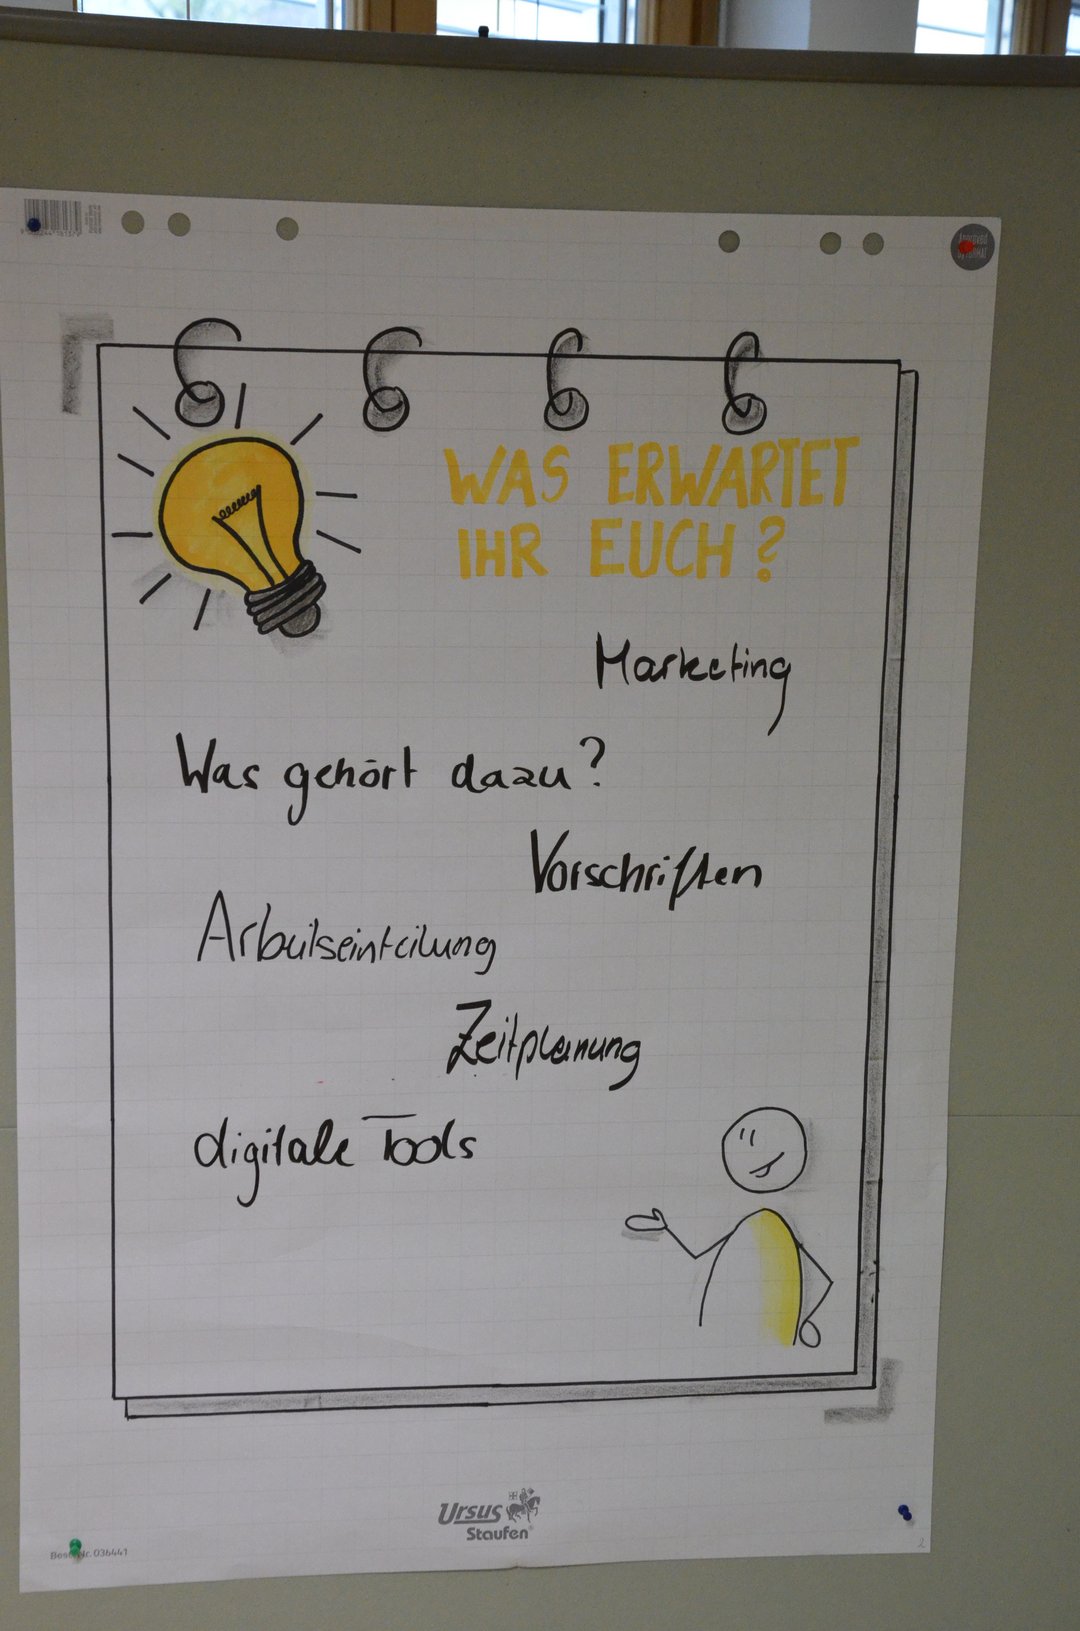 Approved
WAS ERWARTET
IHR EUCH?
Marketing
Was gehört dazu?
Vorschriften
Arbeitseinteilung
Zeitplanung
digitale Tools
Ursus
Staufen
Best.Nr. 036441
2